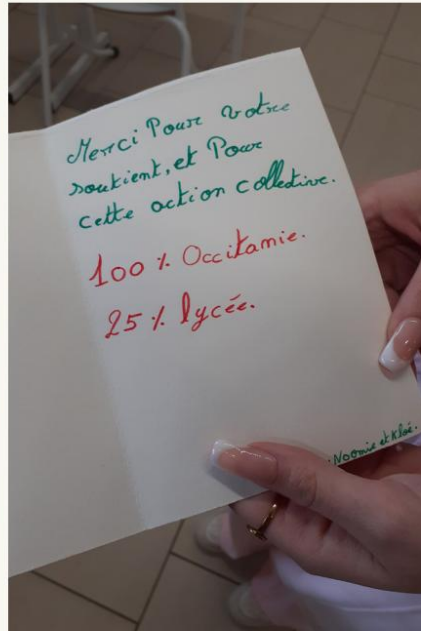 Merci Pour votre
soutient, et Pour
cette action collective.
100 % Occitanie.
25 % lycée.
Noémie et Kloé.